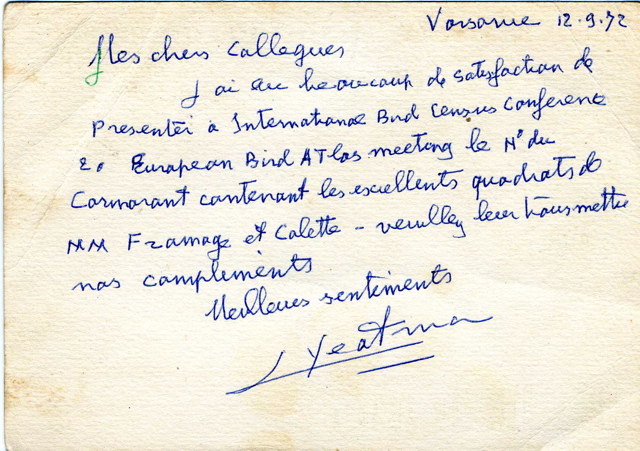 Varsovie 12.9.72
Mes chers collègues
J'ai eu beaucoup de satisfaction de
presenter à International Bird Census Conference
European Bird ATlas meeting le N° du
Cormorant contenant les excellents quadrats de
MM Fromage et Colette - veuillez leur transmettre
nos compliments
Meilleurs sentiments
L Yeatman